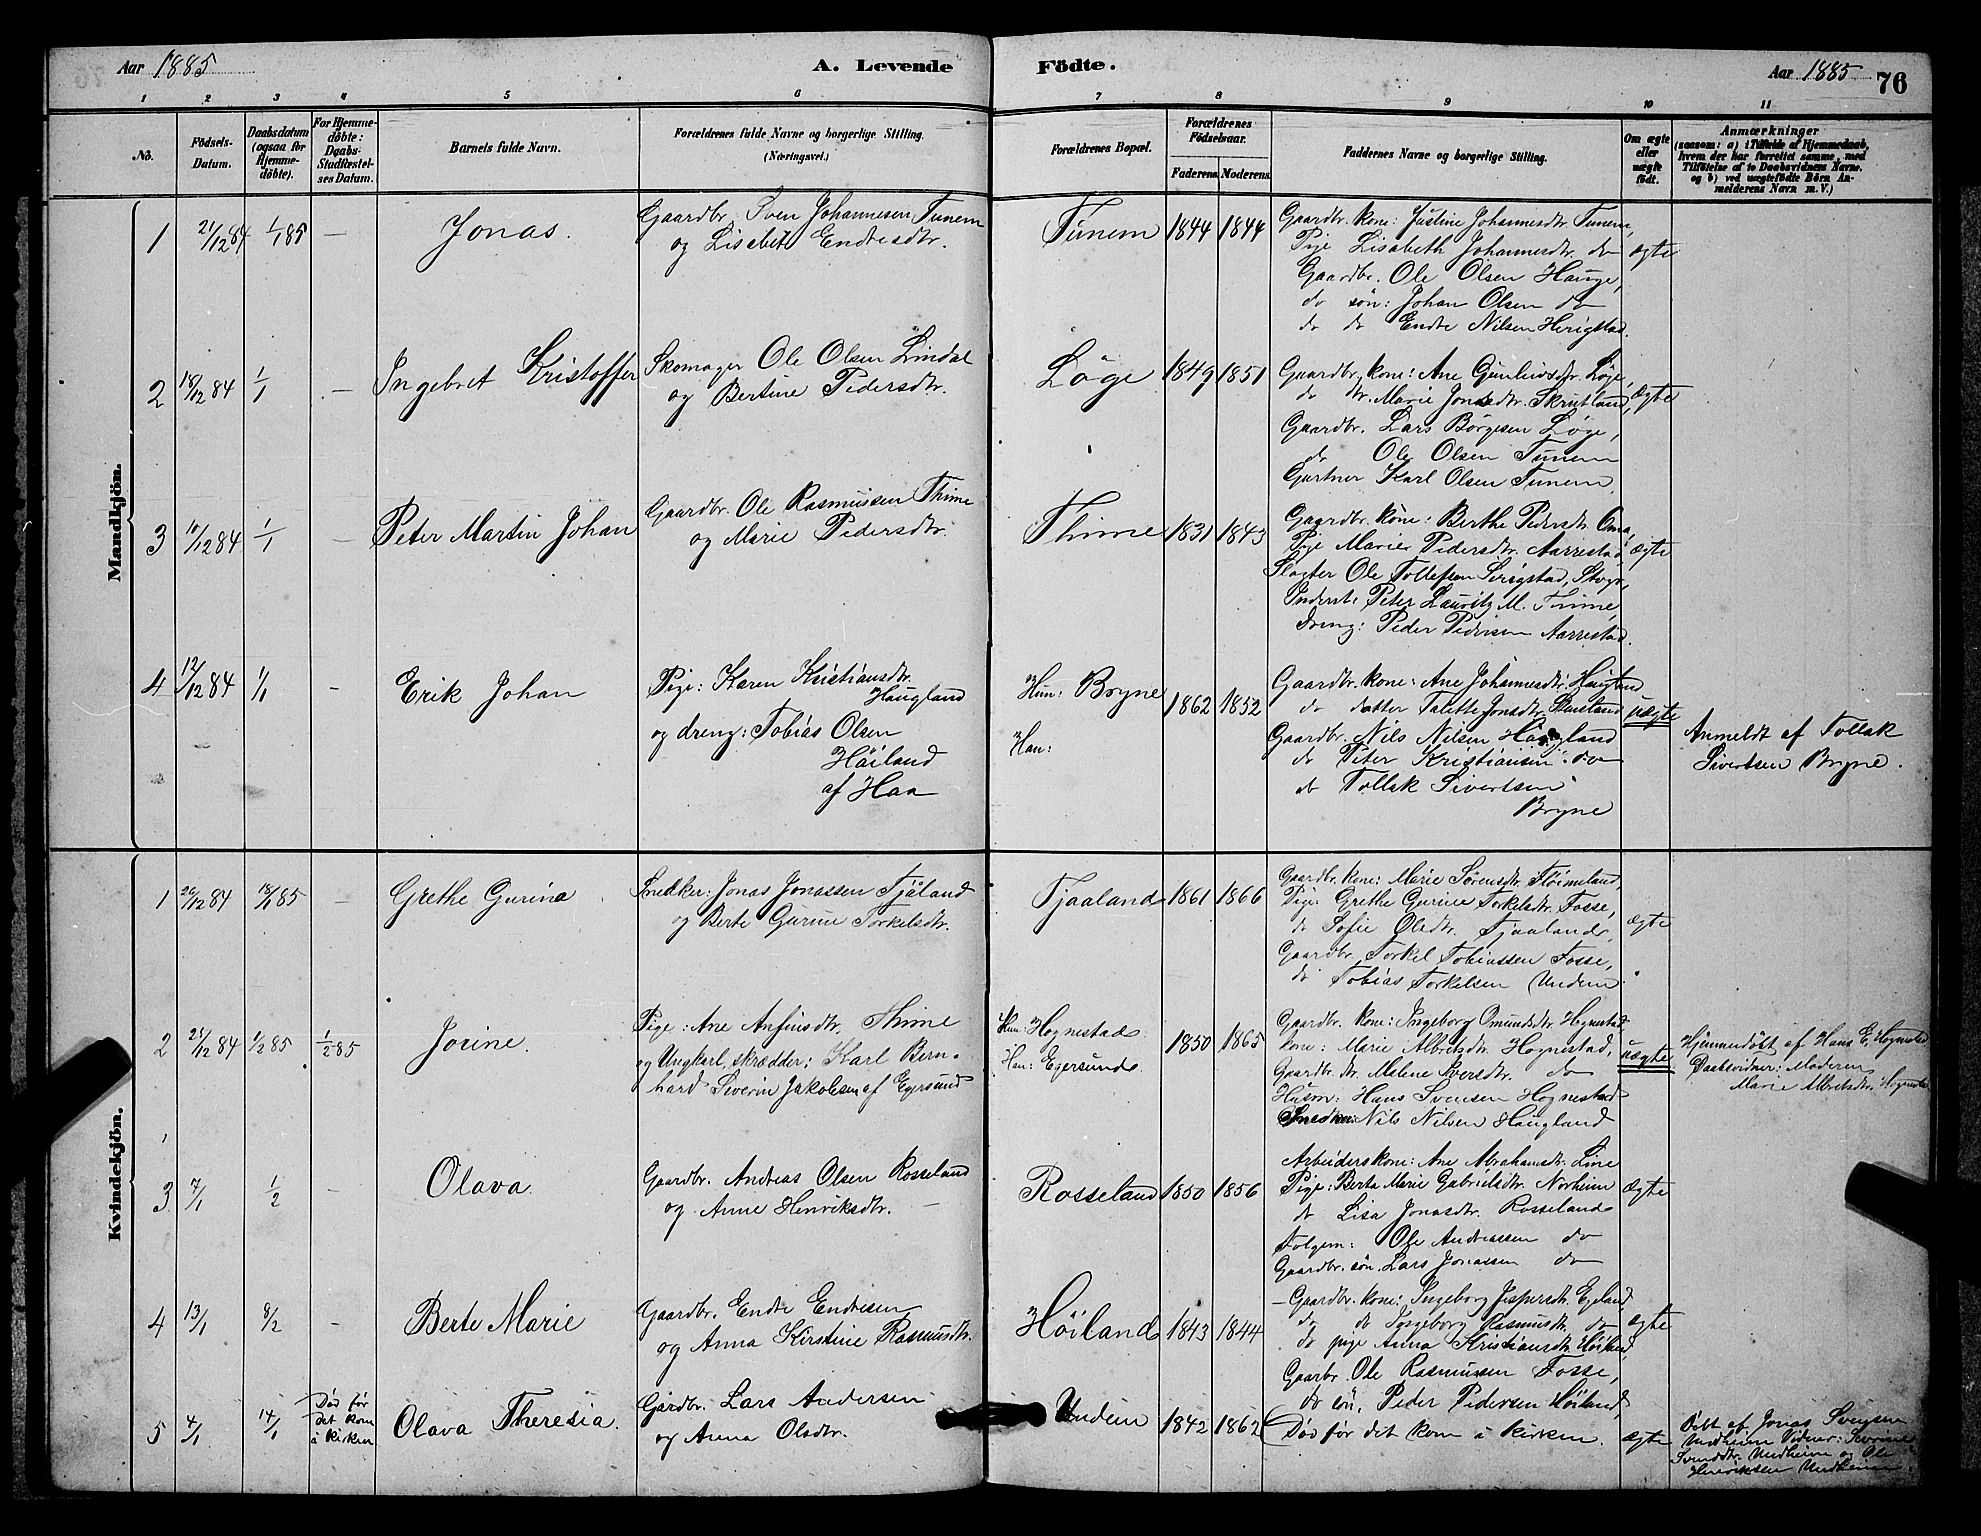 Aar 1885
A. Levende Födte.
Aar 1885 76
1 2 3 4 5 6 7 8 9 10 11
No.
Födsels-Datum.
Daabsdatum (ogsaa for Hjemme-döbte).
For Hjemme-döbte: Daabs-Stadfæstel-ses Datum.
Barnets fulde Navn.
Forældrenes fulde Navne og borgerlige Stilling. (Næringsvei.)
Forældrenes Bopæl.
Forældrenes Födselsaar.
Faderens. Moderens.
Faddernes Navne og borgerlige Stilling.
Om ægte eller uægte födt.
Anmærkninger
(saasom: a) i Tilfælde af Hjemmedaab,
hvem der har forrettet samme, med
Tilföielse af to Daabsvidners Navne.
og b) ved uægtefödte Börn An-
melderens Navn m. V.)
Mandkjön.
1 21/12 84 1/1 85 — Jonas.
Gaardbr. Sven Johannesen Tunem
og Lisabet Endresdtr.
Tunem 1844 1844
Gaardbr. kone: Justine Johannesdtr. Tunem,
Pige Lisabeth Johannesdtr. do
Gaardbr. Ole Olsen Hauge,
do sön: Johan Olsen do
do do Endre Nilsen Herigstad.
ægte
2 18/12 84 1/1 — Ingebret Kristoffer
Skomager Ole Olsen Lindal
og Bertine Pedersdtr.
Löge 1849 1851
Gaardbr. kone: Ane Gunhildsdtr. Löge,
do dtr. Marie Jonasdtr. Skrutland,
Gaardbr. Lars Börgesen Löge,
do Ole Olsen Tunem
Gartner Karl Olsen Tunem
ægte
3 10/12 84 1/1 — Peter Martin Johan
Gaardbr. Ole Rasmussen Thime
og Marie Pedersdtr.
Thime 1831 1843
Gaardbr. kone: Berthe Pedersdtr. Oma,
Pige Marie Pedersdtr. Aarrestad,
Slagter Ole Tollefsen Serigstad,
Inderst: Peter Lauritz M. Thime,
Dreng: Peder Pedersen Aarrestad.
ægte
4 12/12 84 1/1 - Erik Johan
Pige: Karen Kristiansdtr.
Haugland
og dreng: Tobias Olsen
Höiland
af Haa
Hun: Bryne
Han:
1862 1852
Gaardbr. kone: Ane Johannesdtr. Haugland
do datter Talette Jonsdtr.
Gaardbr. Nils Nilsen Haugland
do Peter Kristiansen do
do Tollak Sivertsen
Bryne
uægte
Anmeldt af Tollak
Sivertsen Bryne.
Kvindekjön.
1 20/12 84 18/1 85 — Grethe Gurina
Snedker: Jonas Jonassen Tjåland
og Berte Gurine Torkelsdtr.
Tjaaland 1861 1866
Gaardbr. kone: Marie Sörensdtr.
Pige: Grethe Gurine Torkelsdtr. Fosse,
do Sofie Olsdtr. Tjaaland,
Gaardbr. Torkel Tobiassen Fosse,
do Tobias Torkelsen Undem.
ægte
2 21/12 84 1/2 85 1/2 85 Josine.
Pige: Ane Anfinsdtr. Thime
og Ungkarl, skrædder: Karl Bern-
hard Severin Jakobsen af Egersund
Hun: Hognestad
Han: Egersund
1850 1865
Gaardbr. kone: Ingeborg Omundsdtr. Hognestad
kone: Marie Albretsdtr. Hognestad,
Gaardbr. dtr. Melene Sversdtr. do
Husm: Hans Svensen Hognestad
Snedker: Nils Nilsen Haugland
uægte
Hjemmedöbt af Hans E. Hognestad
Daabsvidner: Moderen
Marie Albretsdtr. Hognestad
3 7/1 1/2 — Olava.
Gaardbr. Andreas Olsen Rosseland
og Anne Henriksdtr.
Rosseland 1850 1856
Arbeiderskone: Ane Abrahamsdtr. Line
Pige: Berta Marie Gabrielsdtr. Norheim
do Lisa Jonasdtr. Rosseland
Folgem: Ole Andreassen do
Gaardbr. sön. Lars Jonassen do
ægte
4 13/1 8/2 - Berte Marie
Gaardbr. Endre Endresen
og Anna Kirstine Rasmusdtr.
Höiland 1843 1844
Gaardbr. kone: Ingeborg Jespersdtr. Egeland
do do Torgeborg Rasmusdtr. do
do pige Anna Kristiansdtr. Höiland,
Gaarbr. Ole Rasmussen Fosse,
do sön, Peder Pedersen Höiland,
ægte
5 4/1 14/1
Död för
det kom
i kirken
Olava Theresia.
Gårdbr. Lars Andersen
og Anna Olsdtr.
Undem 1842 1862
Död för det kom i kirken.
ægte
Döbt af Jonas Svensen
Undheim Vidner: Severine
Svendsdtr. Undheim og Ole
Henriksen Undheim.